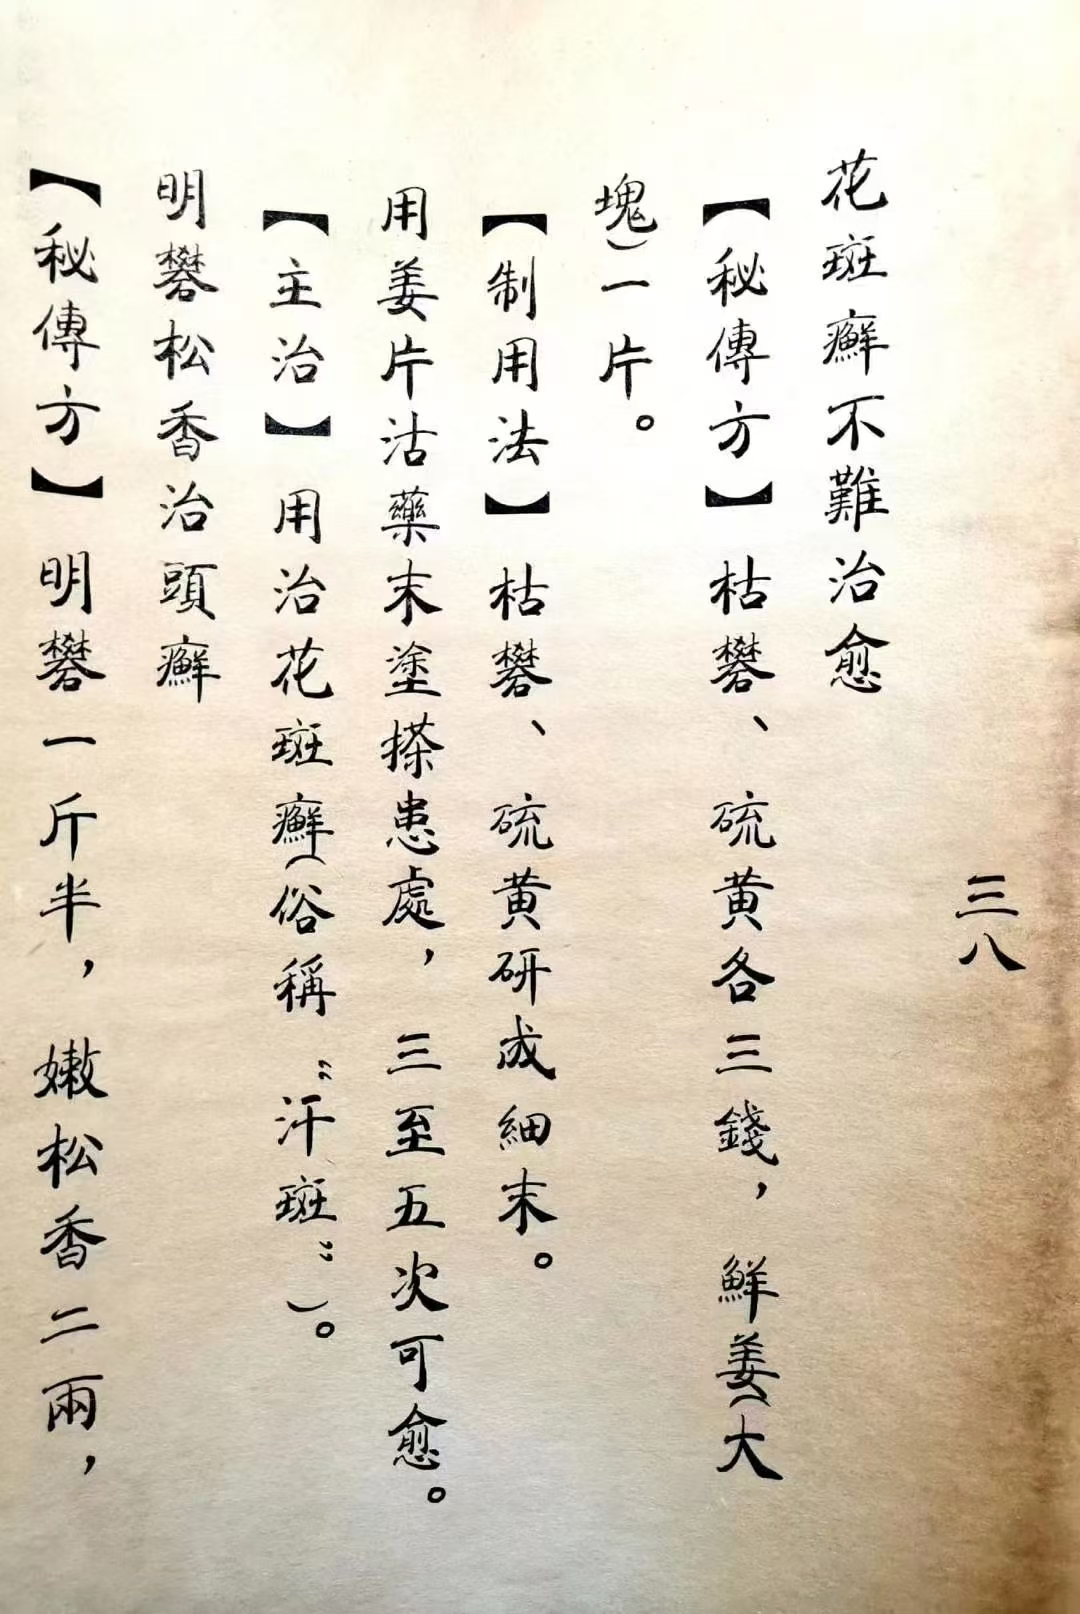 三八
花斑癬不難治愈
【秘傳方】枯礬、硫黄各三錢，鮮姜（大
塊）一片。
【制用法】枯礬、硫黄研成細末。
用姜片沽藥末塗搽患處，三至五次可愈。
【主治】用治花斑癬（俗稱“汗斑”）。
明礬松香治頭癬
【秘傳方】明礬一斤半，嫩松香二兩，